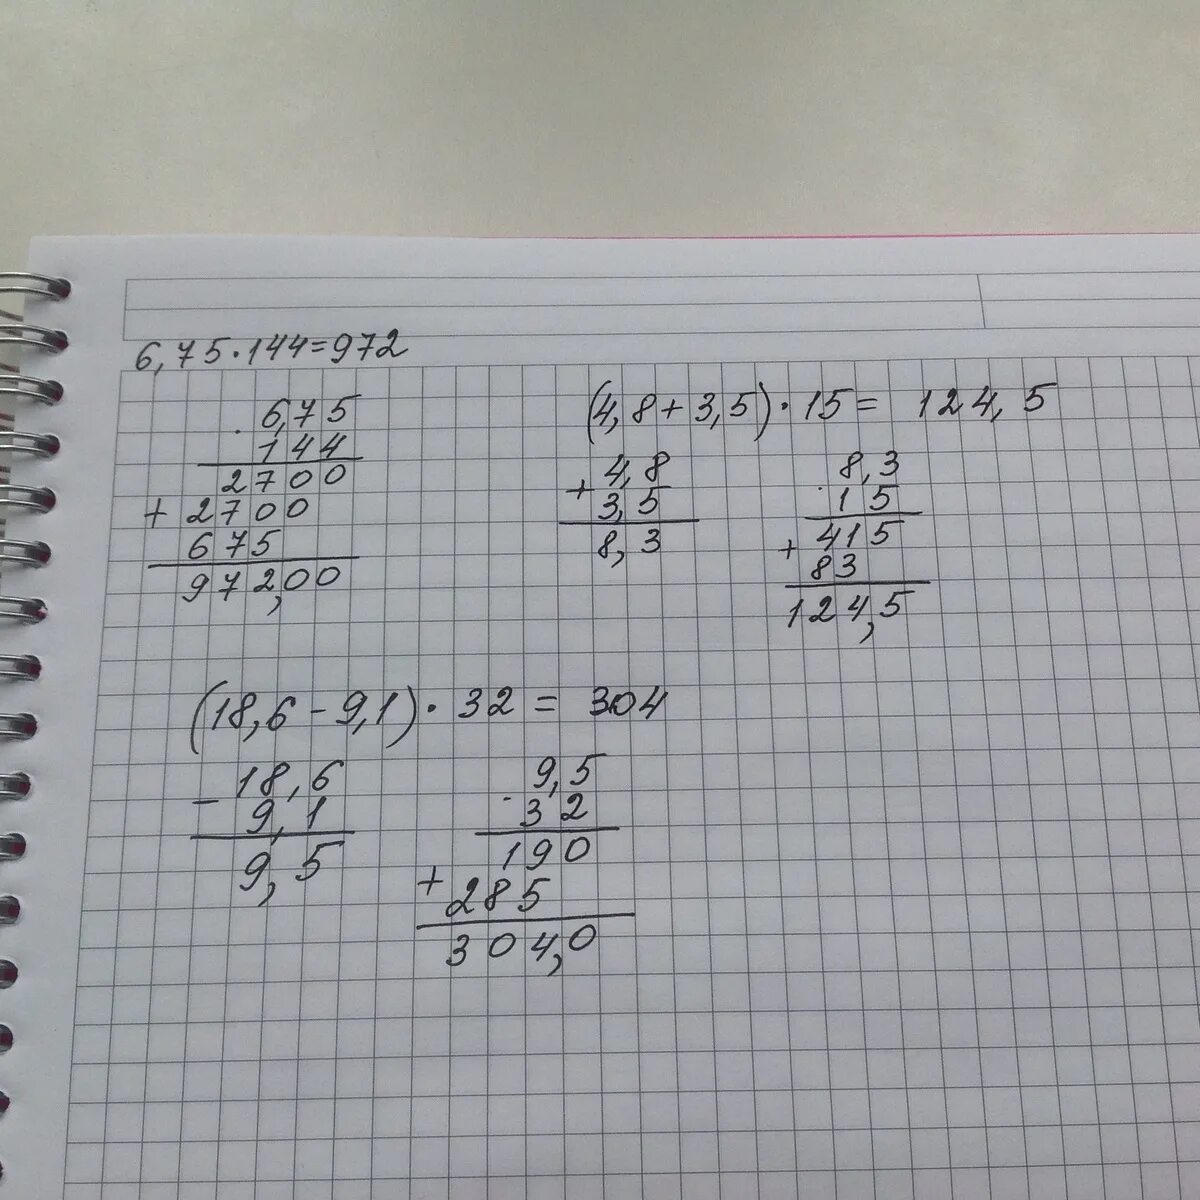 6,75·144=972
. 6,75
144
2700
+ 2700
675
972,00
(4,8+3,5)·15= 124,5
+ 4,8
3,5
8,3
8,3
. 15
415
+ 83
124,5
(18,6-9,1)·32= 304
- 18,6
9,1
9,5
9,5
. 32
190
+ 285
304,0